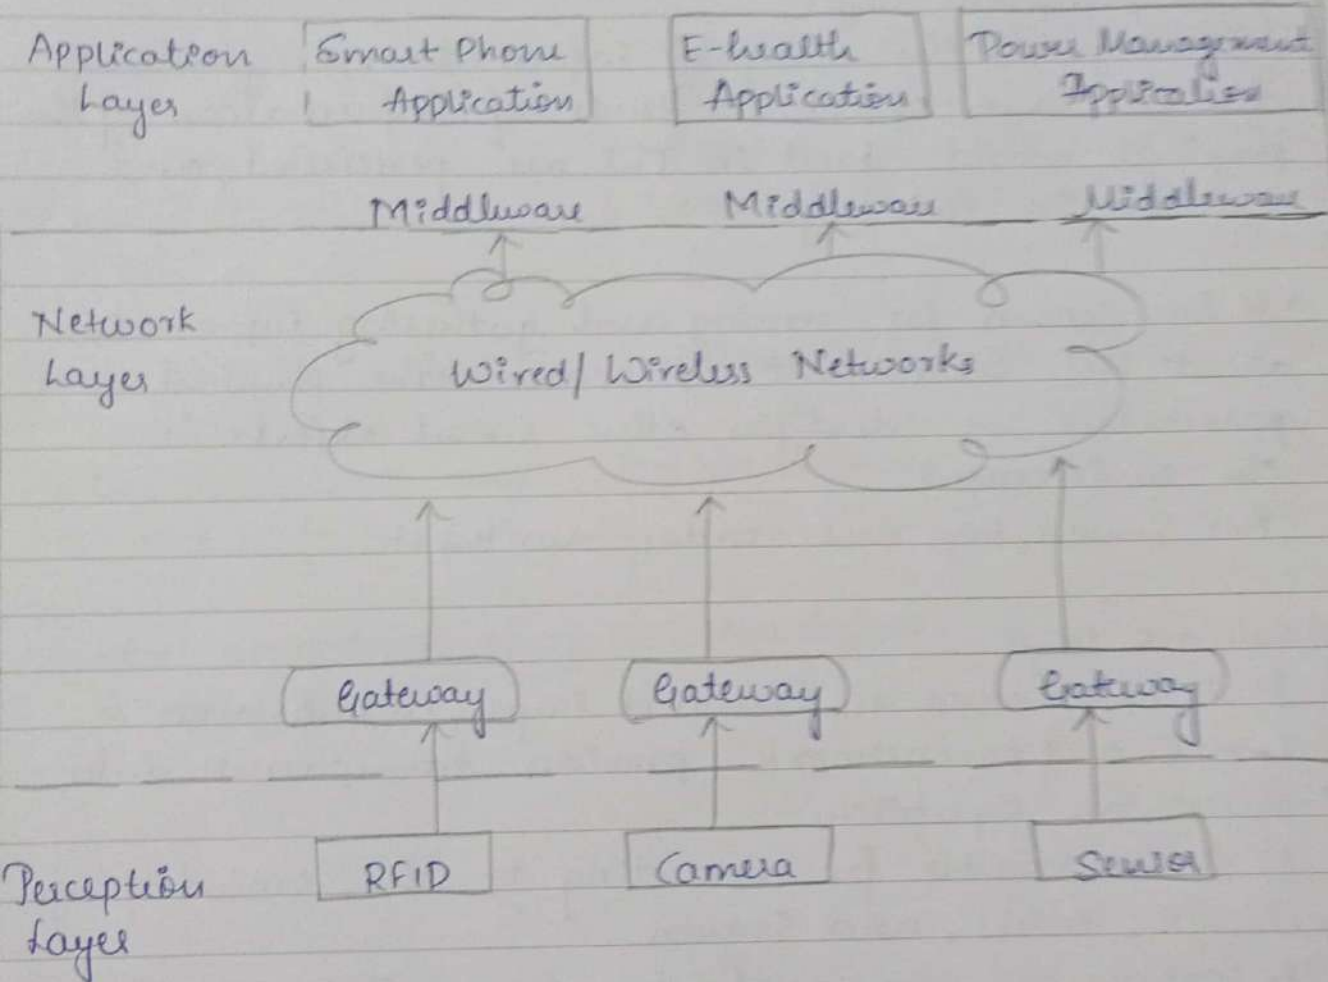 Application
Layer
Smart Phone
Application
E-health
Application
Power Management
Application
Middleware
Middleware
Middleware
Network
Layer
Wired/Wireless Networks
Gateway
Gateway
Gateway
Perception
Layer
RFID
Camera
Sensor